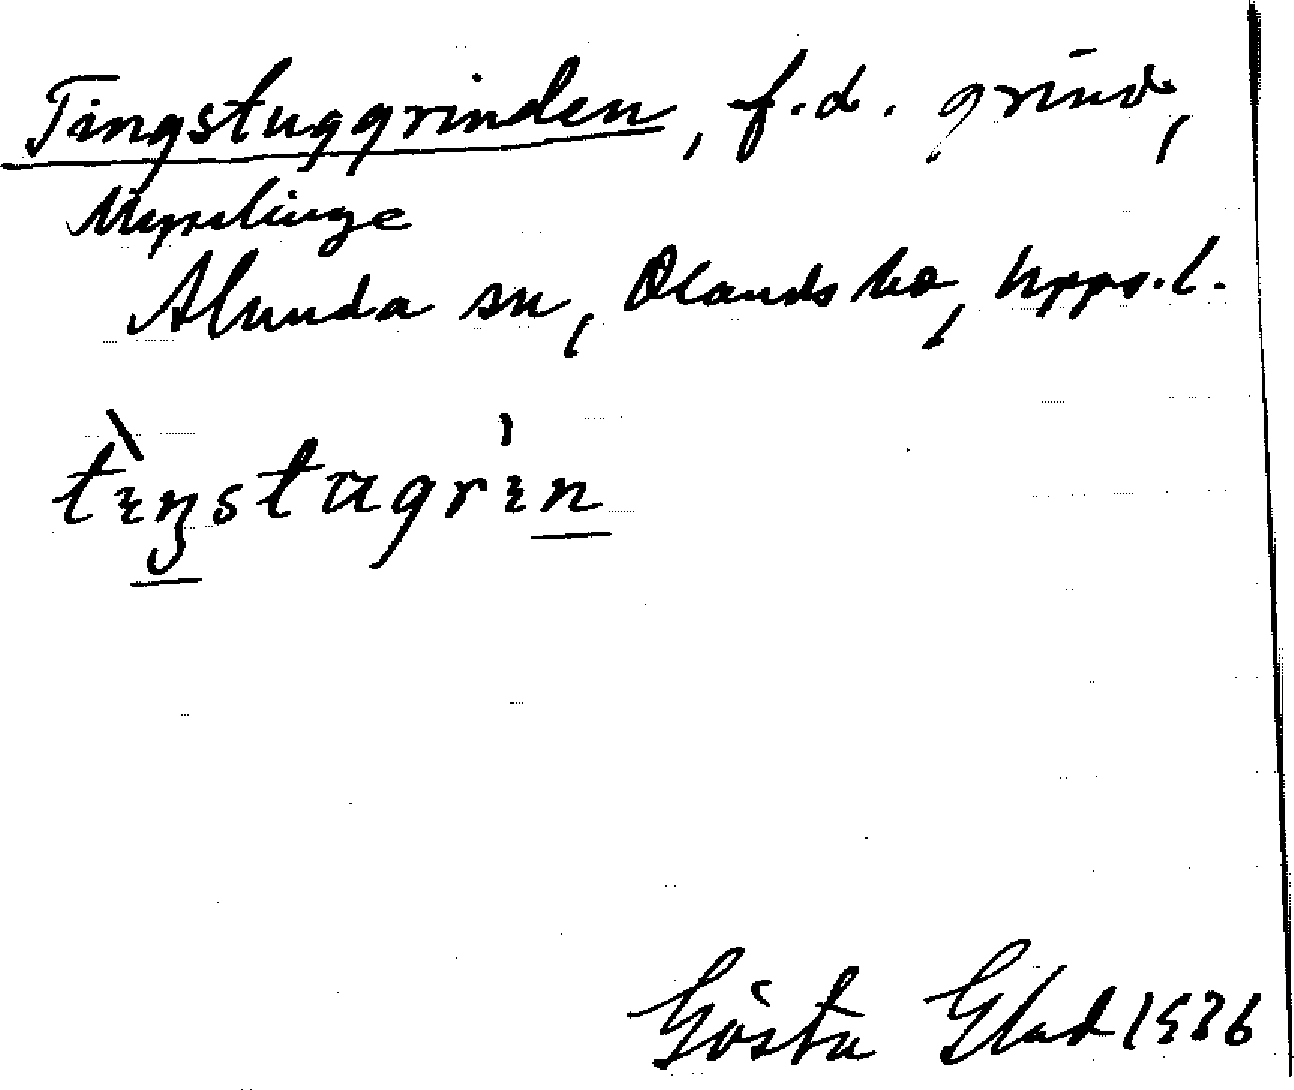 Tingstuggrinden, f.d. grind,
Myrslinge
Alunda sn, Olands hd, Upps.l.
tìŋstugrın
Gösta Glad 1936